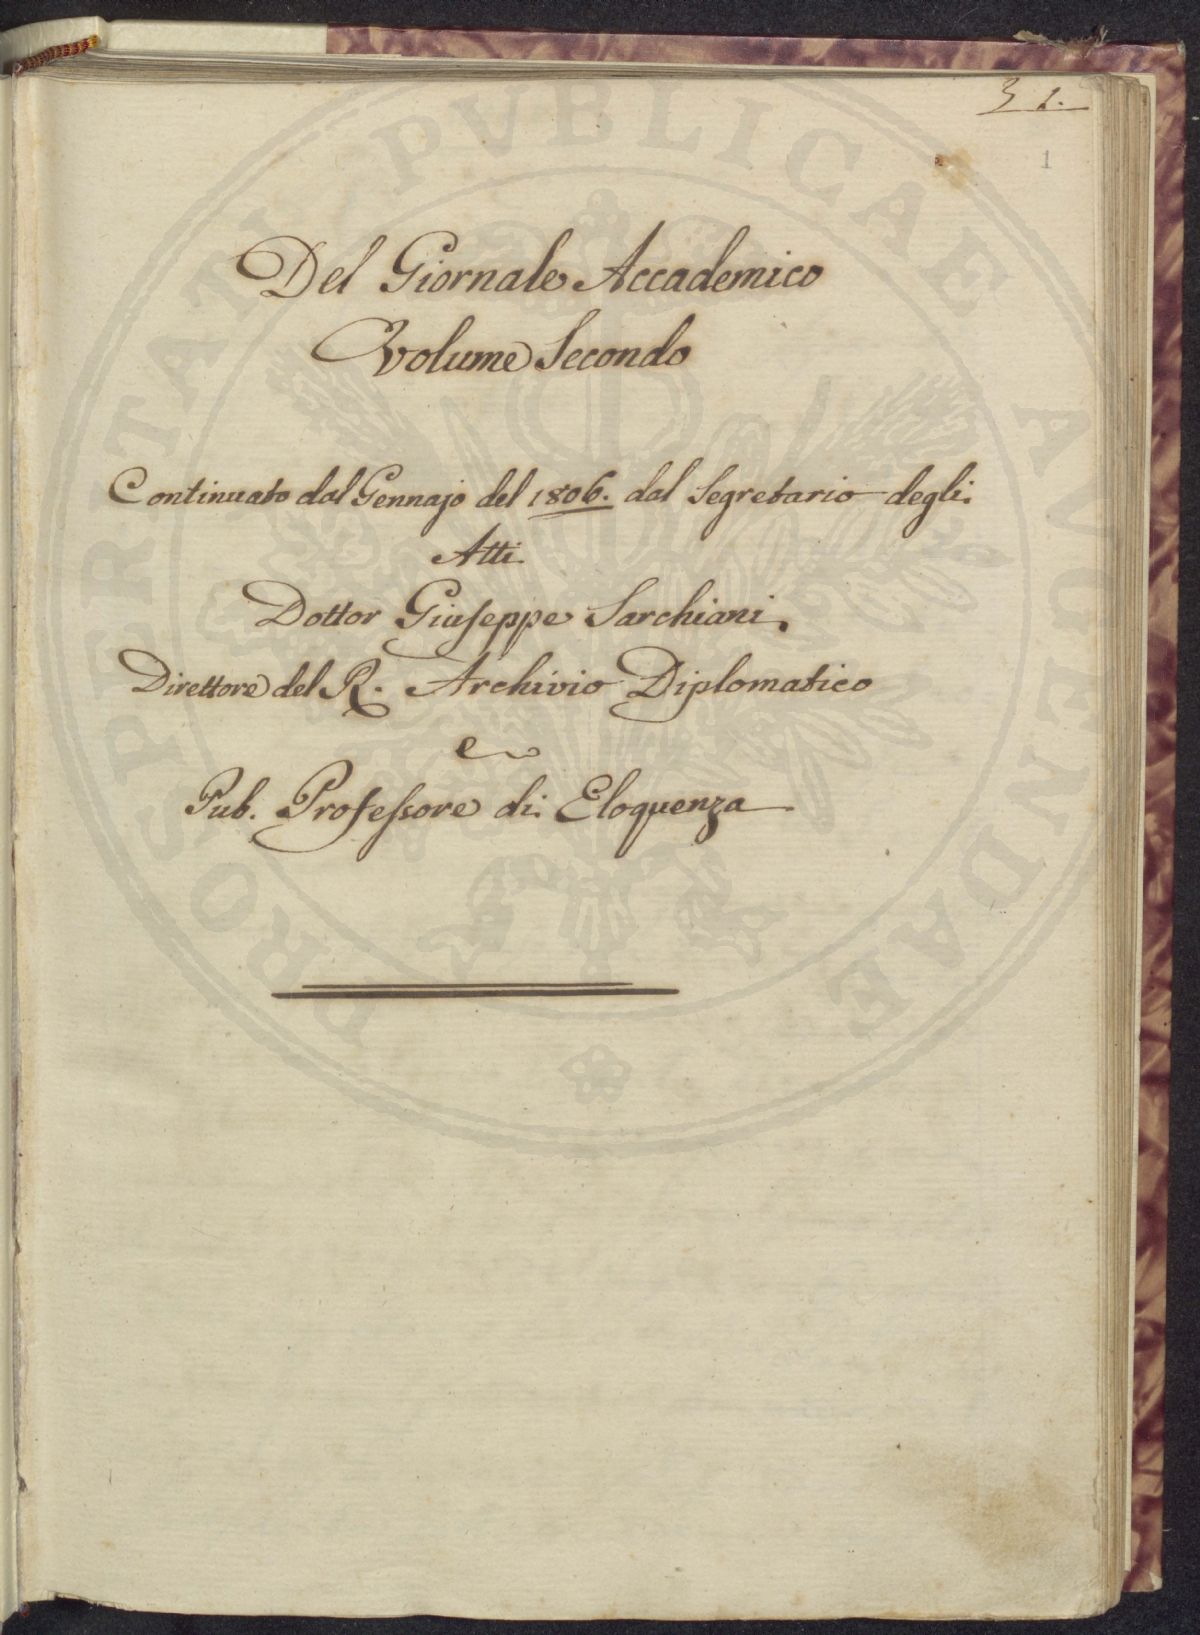 3 1.
1
Del Giornale Accademico
Volume Secondo
Continuato dal Gennajo del 1806. dal Segretario degli
Atti
Dottor Giuseppe Sarchiani.
Direttore del R. Archivio Diplomatico
e
Pub. Professore di Eloquenza
PROSPERITATI PVBLICAE AVGENDAE